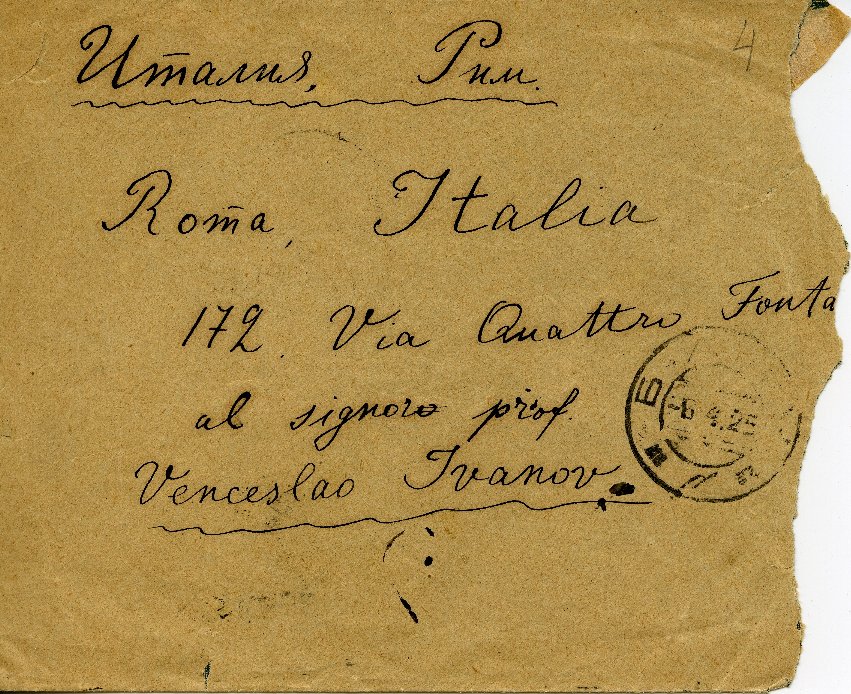 4
Италия, Рим.
Roma, Italia
172. Via Quattro Fonta
al signoro prof.
Venceslao Ivanov
6.4.25